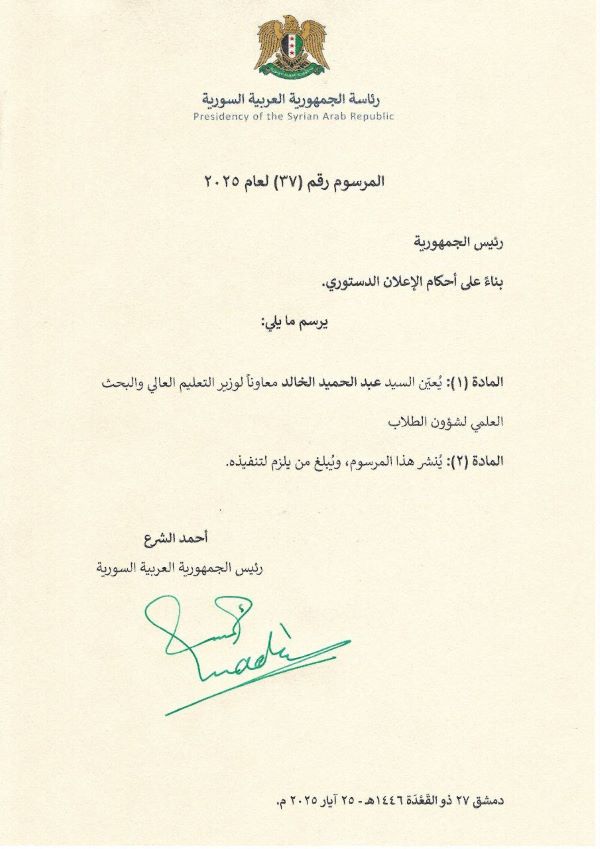 رئاسة الجمهورية العربية السورية
Presidency of the Syrian Arab Republic
المرسوم رقم (٣٧) لعام ٢٠٢٥
رئيس الجمهورية
بناءً على أحكام الإعلان الدستوري.
يرسم ما يلي:
المادة (١): يُعيّن السيد عبد الحميد الخالد معاوناً لوزير التعليم العالي والبحث
العلمي لشؤون الطلاب
المادة (٢): يُنشر هذا المرسوم، ويُبلغ من يلزم لتنفيذه.
أحمد الشرع
رئيس الجمهورية العربية السورية
دمشق ٢٧ ذو القَعْدَة ١٤٤٦هـ - ٢٥ آيار ٢٠٢٥ م.